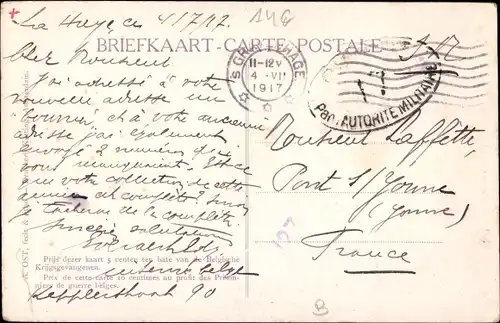 La Haye, ce 4/7/17.
144
BRIEFKAART-CARTE POSTALE
'S GRAVENHAGE
11-12V
4 VII
1917
Par AUTORITÉ MILITAIRE
Cher Monsieur
J'ai adressé à votre
nouvelle adresse un
et à votre ancienne
adresse j'ai également
envoyé 2 numéros qui
vous manquaient. Est-ce
que votre collection de cette
année est complète? Sinon
je tâcherai de la compléter
Sincères salutations
Prijs dezer kaart 5 centen ten bate van de Belgische
Krijgsgevangenen.
Prix de cette carte 10 centimes au profit des Prison-
niers de guerre belges.
interné belge
Kepplerstraat 90
Monsieur Laffette,
Pont s/Yonne
(Yonne)
France
B